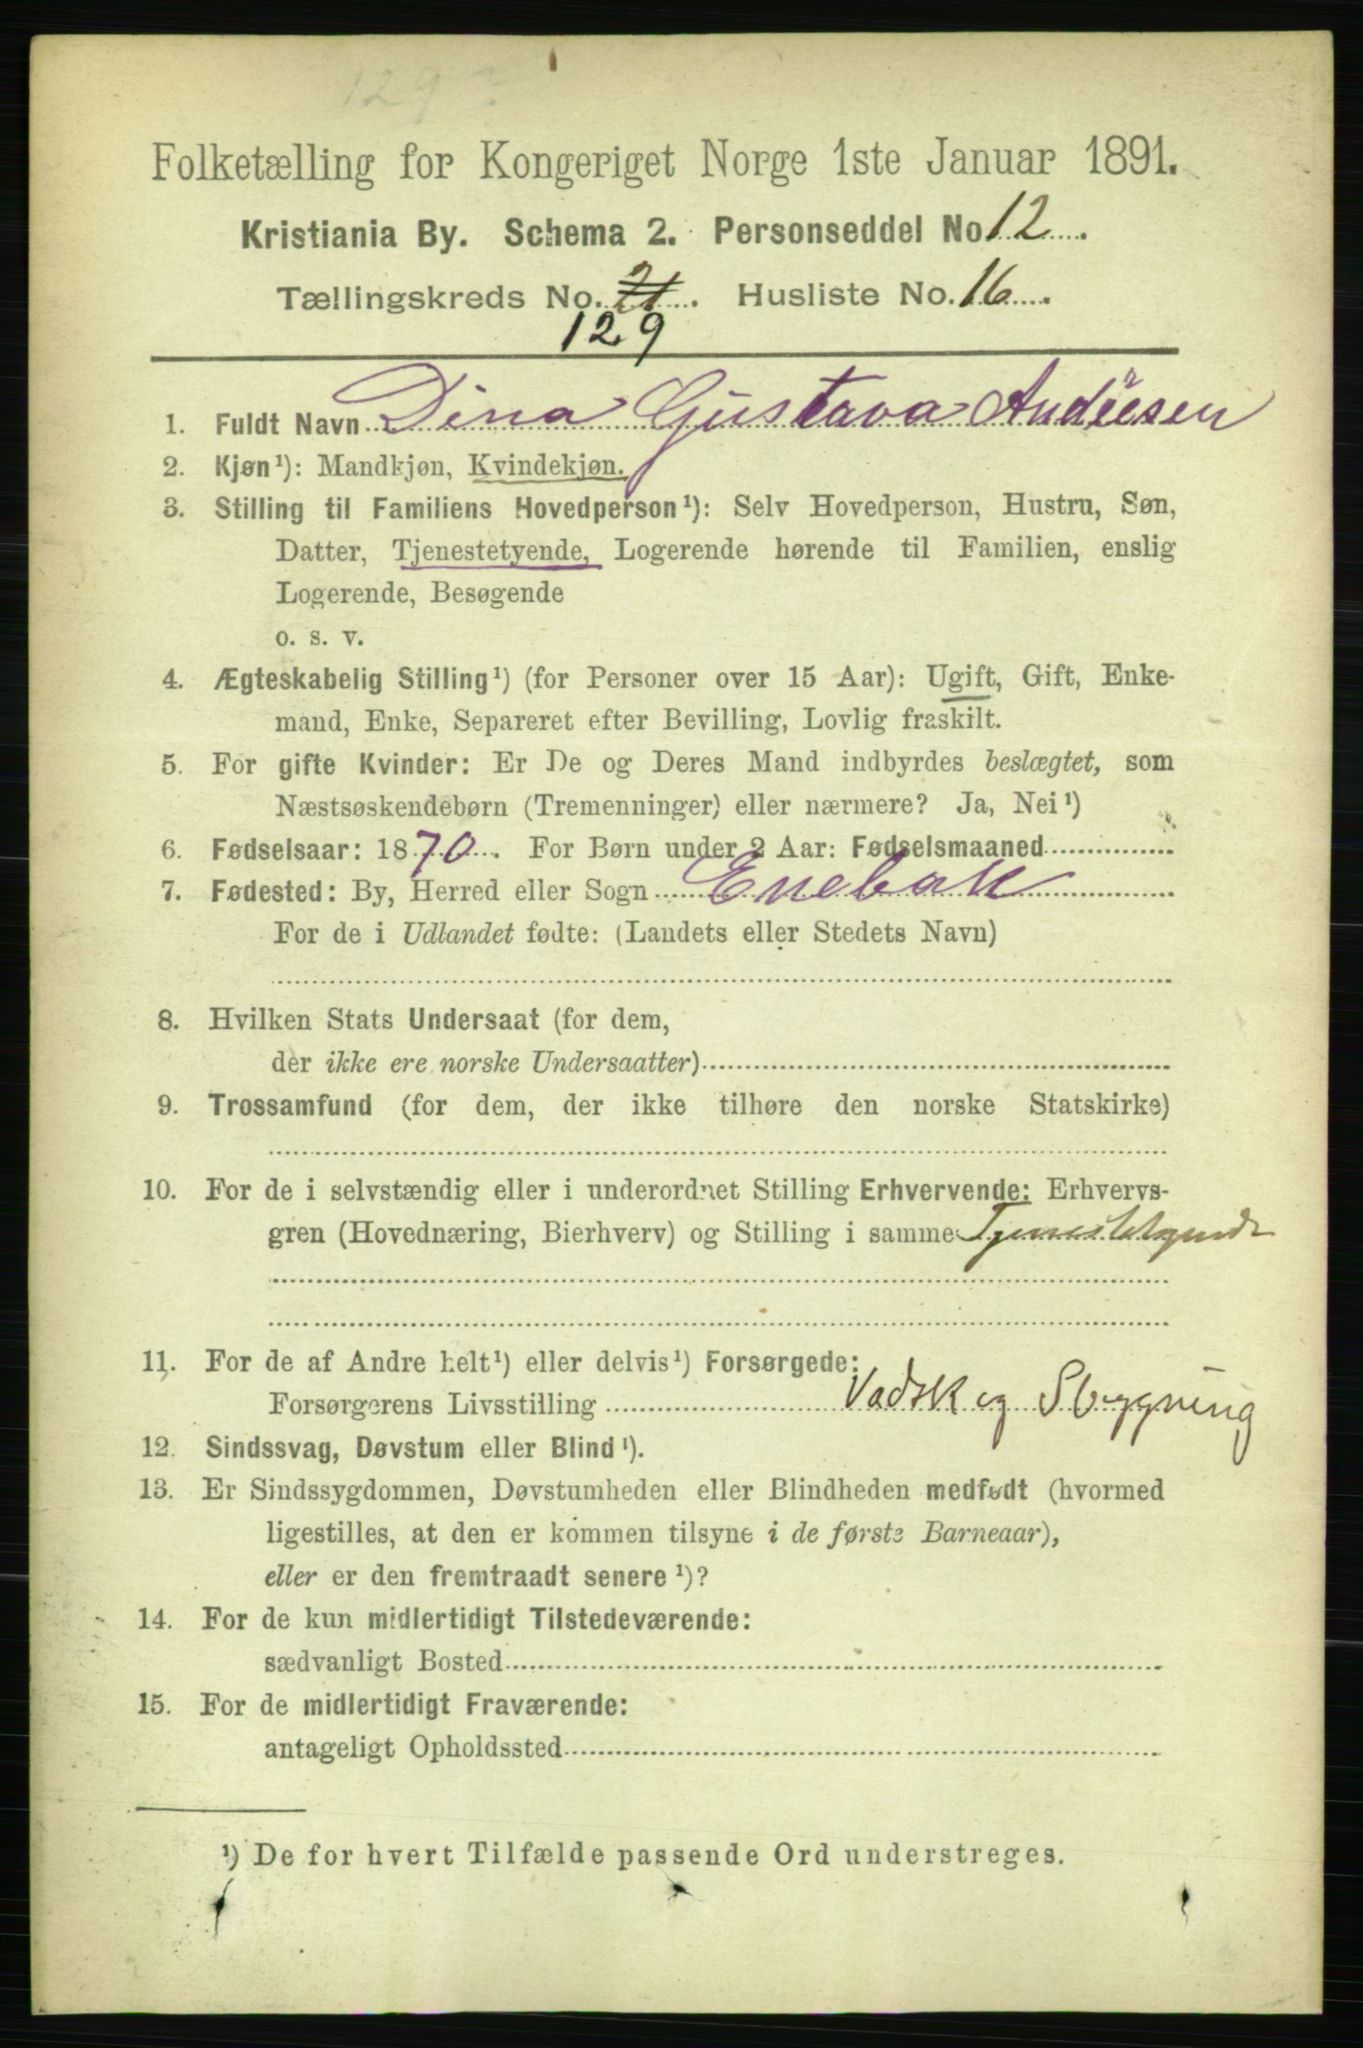 129
Folketælling for Kongeriget Norge 1ste Januar 1891.
Kristiania By. Schema 2. Personseddel No 12.
Tællingskreds No. 21. Husliste No. 16.
129
1. Fuldt Navn Dina Gustava Andersen
2. Kjøn¹): Mandkjøn, Kvindekjøn.
3. Stilling til Familiens Hovedperson¹): Selv Hovedperson, Hustru, Søn,
Datter, Tjenestetyende, Logerende hørende til Familien, enslig
Logerende, Besøgende
o. s. v.
4. Ægteskabelig Stilling¹) (for Personer over 15 Aar): Ugift, Gift, Enke-
mand, Enke, Separeret efter Bevilling, Lovlig fraskilt.
5. For gifte Kvinder: Er De og Deres Mand indbyrdes beslægtet, som
Næstsøskendebørn (Tremenninger) eller nærmere? Ja, Nei¹)
6. Fødselsaar: 1870. For Børn under 2 Aar: Fødselsmaaned
7. Fødested: By, Herred eller Sogn Enebak
For de i Udlandet fødte: (Landets eller Stedets Navn)
8. Hvilken Stats Undersaat (for dem,
der ikke ere norske Undersaatter)
9. Trossamfund (for dem, der ikke tilhøre den norske Statskirke)
10. For de i selvstændig eller i underordnet Stilling Erhvervende: Erhvervs-
gren (Hovednæring, Bierhverv) og Stilling i samme Tjenestetyende
11. For de af Andre helt¹) eller delvis¹) Forsørgede:
Forsørgerens Livsstilling Vadsk og
12. Sindssvag, Døvstum eller Blind¹).
13. Er Sindssygdommen, Døvstumheden eller Blindheden medfødt (hvormed
ligestilles, at den er kommen tilsyne i de første Barneaar),
eller er den fremtraadt senere¹)?
14. For de kun midlertidigt Tilstedeværende:
sædvanligt Bosted
15. For de midlertidigt Fraværende:
antageligt Opholdssted
¹) De for hvert Tilfælde passende Ord understreges.